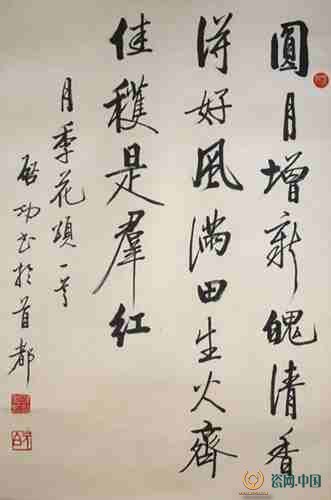 圓月增新魄清香
得好風满田生火齊
佳穫是羣红
月季花頌一
啟功书於首都
瓷网.中国